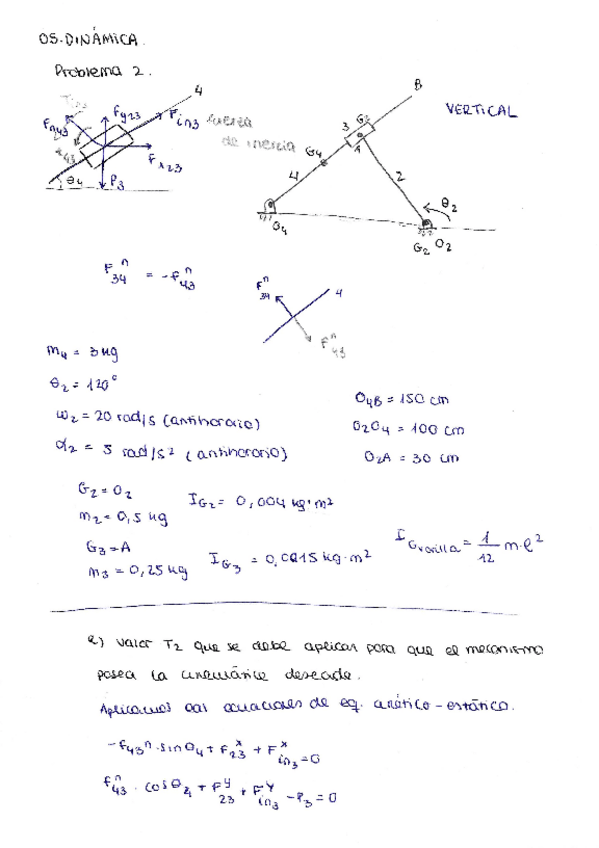 05. DINÁMICA.
Problema 2.
4
F^n_43
F_y23
F_in3 fuerza de inercia
F_x23
P_3
θ_4
B
VERTICAL
3
G_3
A
G_4
4
2
θ_2
O_4
G_2 O_2
F^n_34 = -F^n_43
F^n_34
4
F^n_43
m_4 = 3 kg
θ_2 = 120°
ω_2 = 20 rad/s (antihorario)
α_2 = 5 rad/s² (antihorario)
O_4B = 150 cm
O_2O_4 = 100 cm
O_2A = 30 cm
G_2 = O_2
m_2 = 0,5 kg
I_G2 = 0,004 kg·m²
G_3 = A
m_3 = 0,25 kg
I_G3 = 0,0015 kg·m²
I_Gvarilla = 1/12 m·l²
a) Valor T_2 que se debe aplicar para que el mecanismo
posea la cinemática deseada.
Aplicamos las ecuaciones de eq. cinético-estático.
-f_43^n · sin θ_4 + f_23^x + F_in3^x = 0
f_43^n · cos θ_4 + F_23^y + F_in3^y - P_3 = 0